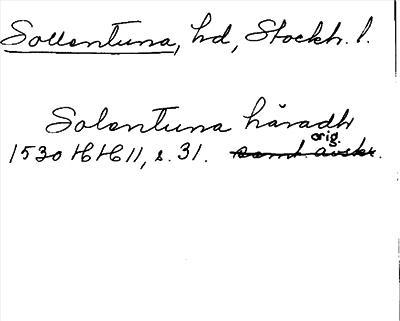 Sollentuna, hd, Stockh. l.
Solentuna häradh
orig.
1530 HH 11, s. 31. samt avskr.